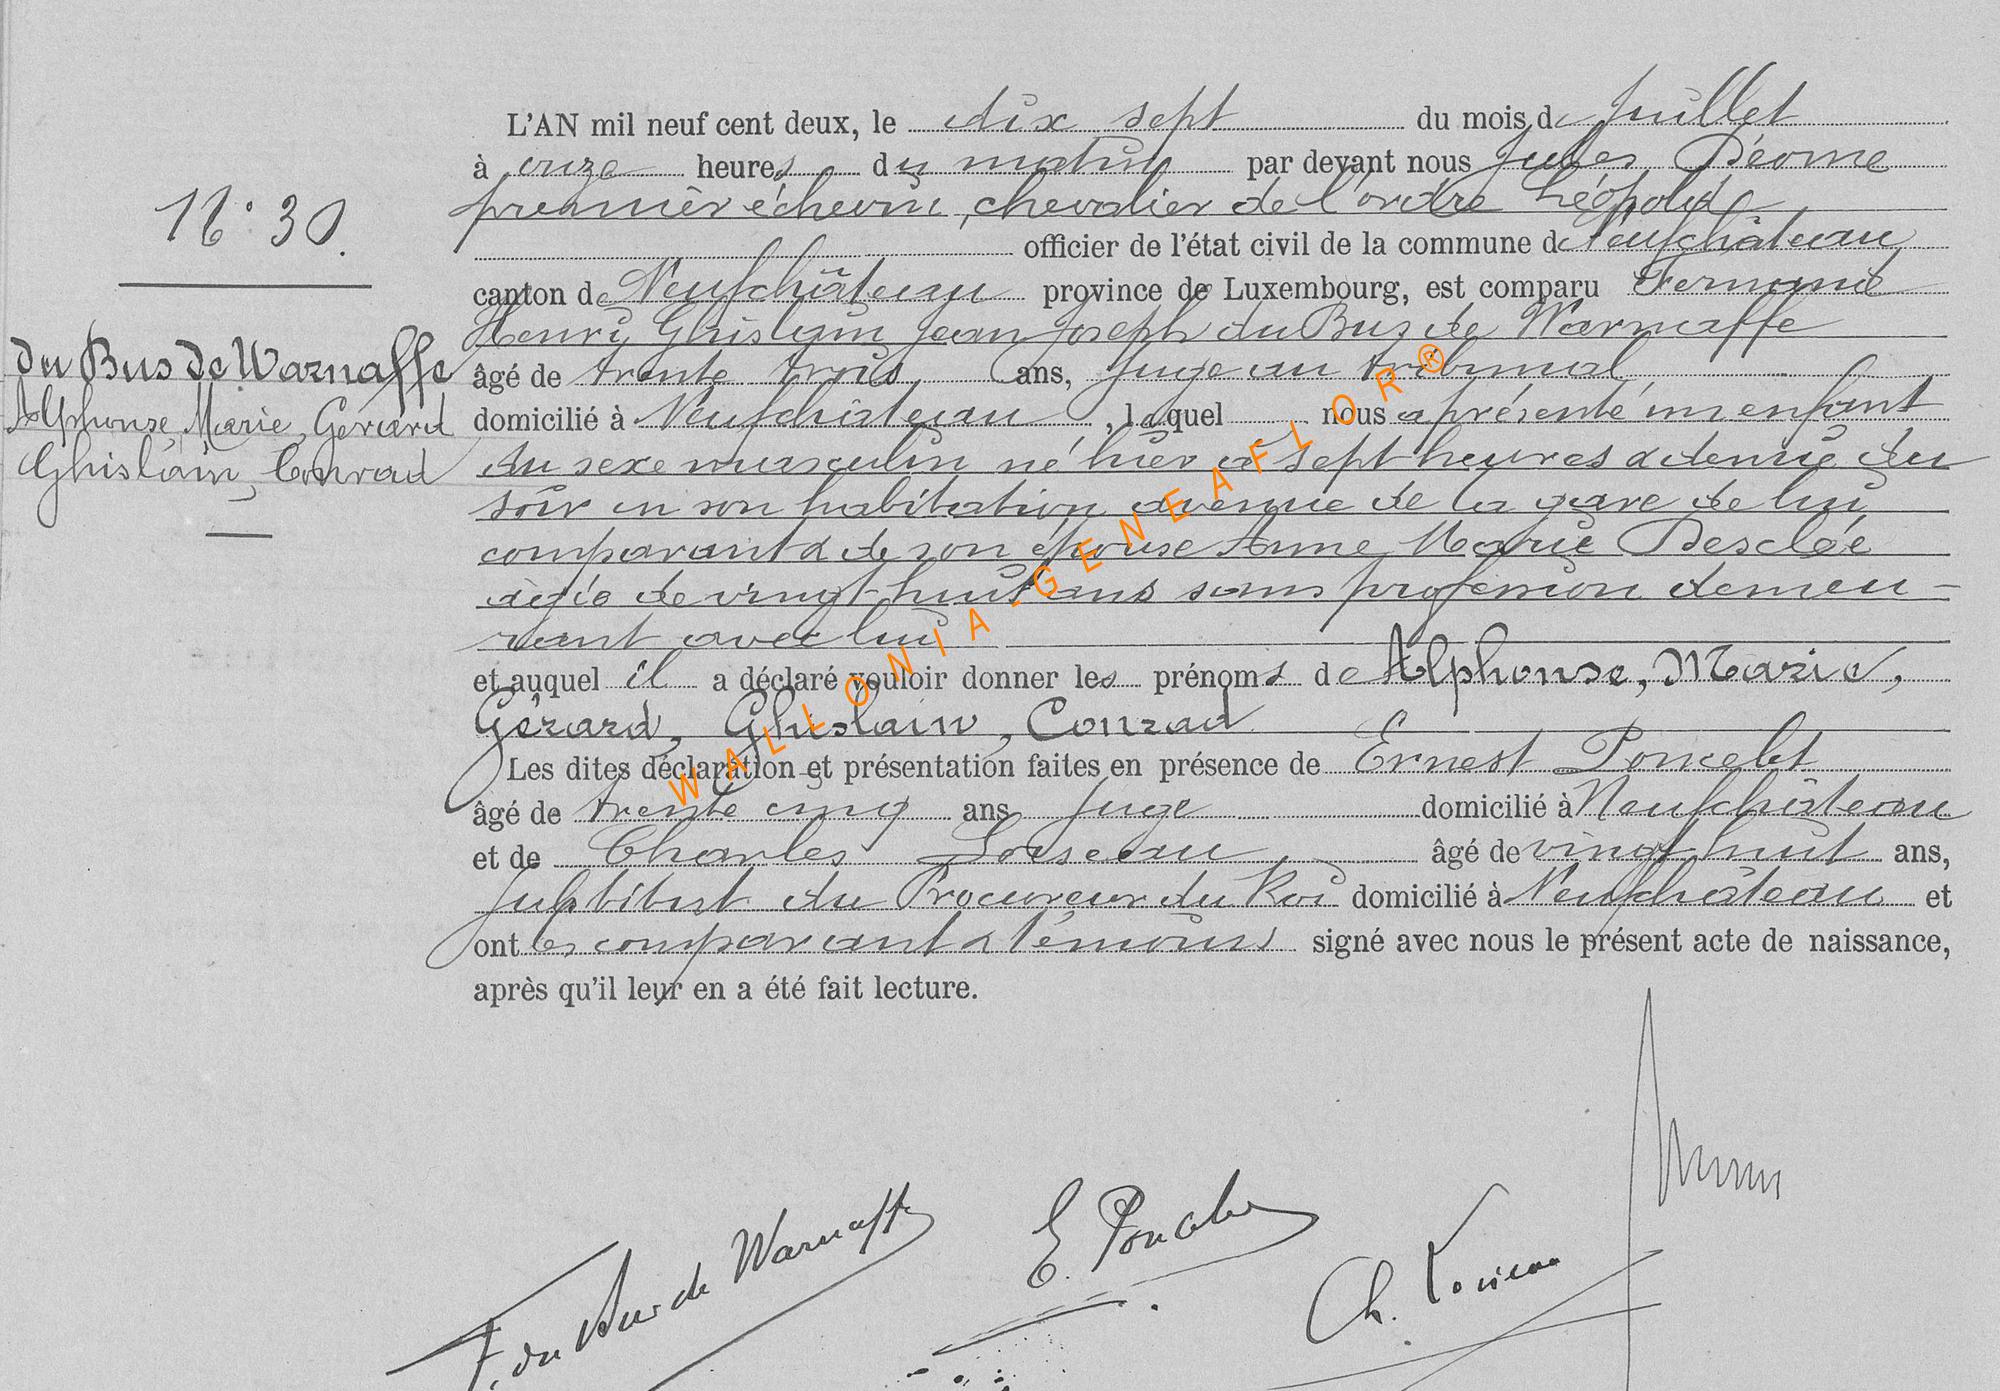 L'AN mil neuf cent deux, le dix sept du mois de Juillet
à onze heures du matin par devant nous Jules Déome
premier échevin, chevalier de l'ordre Léopold
officier de l'état civil de la commune de Neufchâteau
canton de Neufchâteau province de Luxembourg, est comparu Fernand
Henry Ghislain Jean Joseph du Bus de Warnaffe
âgé de trente trois ans, juge au tribunal,
domicilié à Neufchâteau, lequel nous a présenté un enfant
du sexe masculin né hier à sept heures & demie du
soir en son habitation avenue de la gare de lui
comparant & de son épouse Anne Marie Desclée
âgée de vingt-huit ans sans profession demeu-
rant avec lui
et auquel il a déclaré vouloir donner les prénoms de Alphonse, Marie,
Gérard, Ghislain, Conrad
Les dites déclaration et présentation faites en présence de Ernest Poncelet
âgé de trente cinq ans juge domicilié à Neufchâteau
et de Charles Loiseau, âgé de vingt huit ans,
Substitut du Procureur du Roi domicilié à Neufchâteau et
ont les comparant & témoins signé avec nous le présent acte de naissance,
après qu'il leur en a été fait lecture.
N° 30.
du Bus de Warnaffe
Alphonse, Marie, Gérard
Ghislain, Conrad
WALLONIA-GENEAFLOR®
F. du Bus de Warnaffe
E. Poncelet
Ch. Loiseau